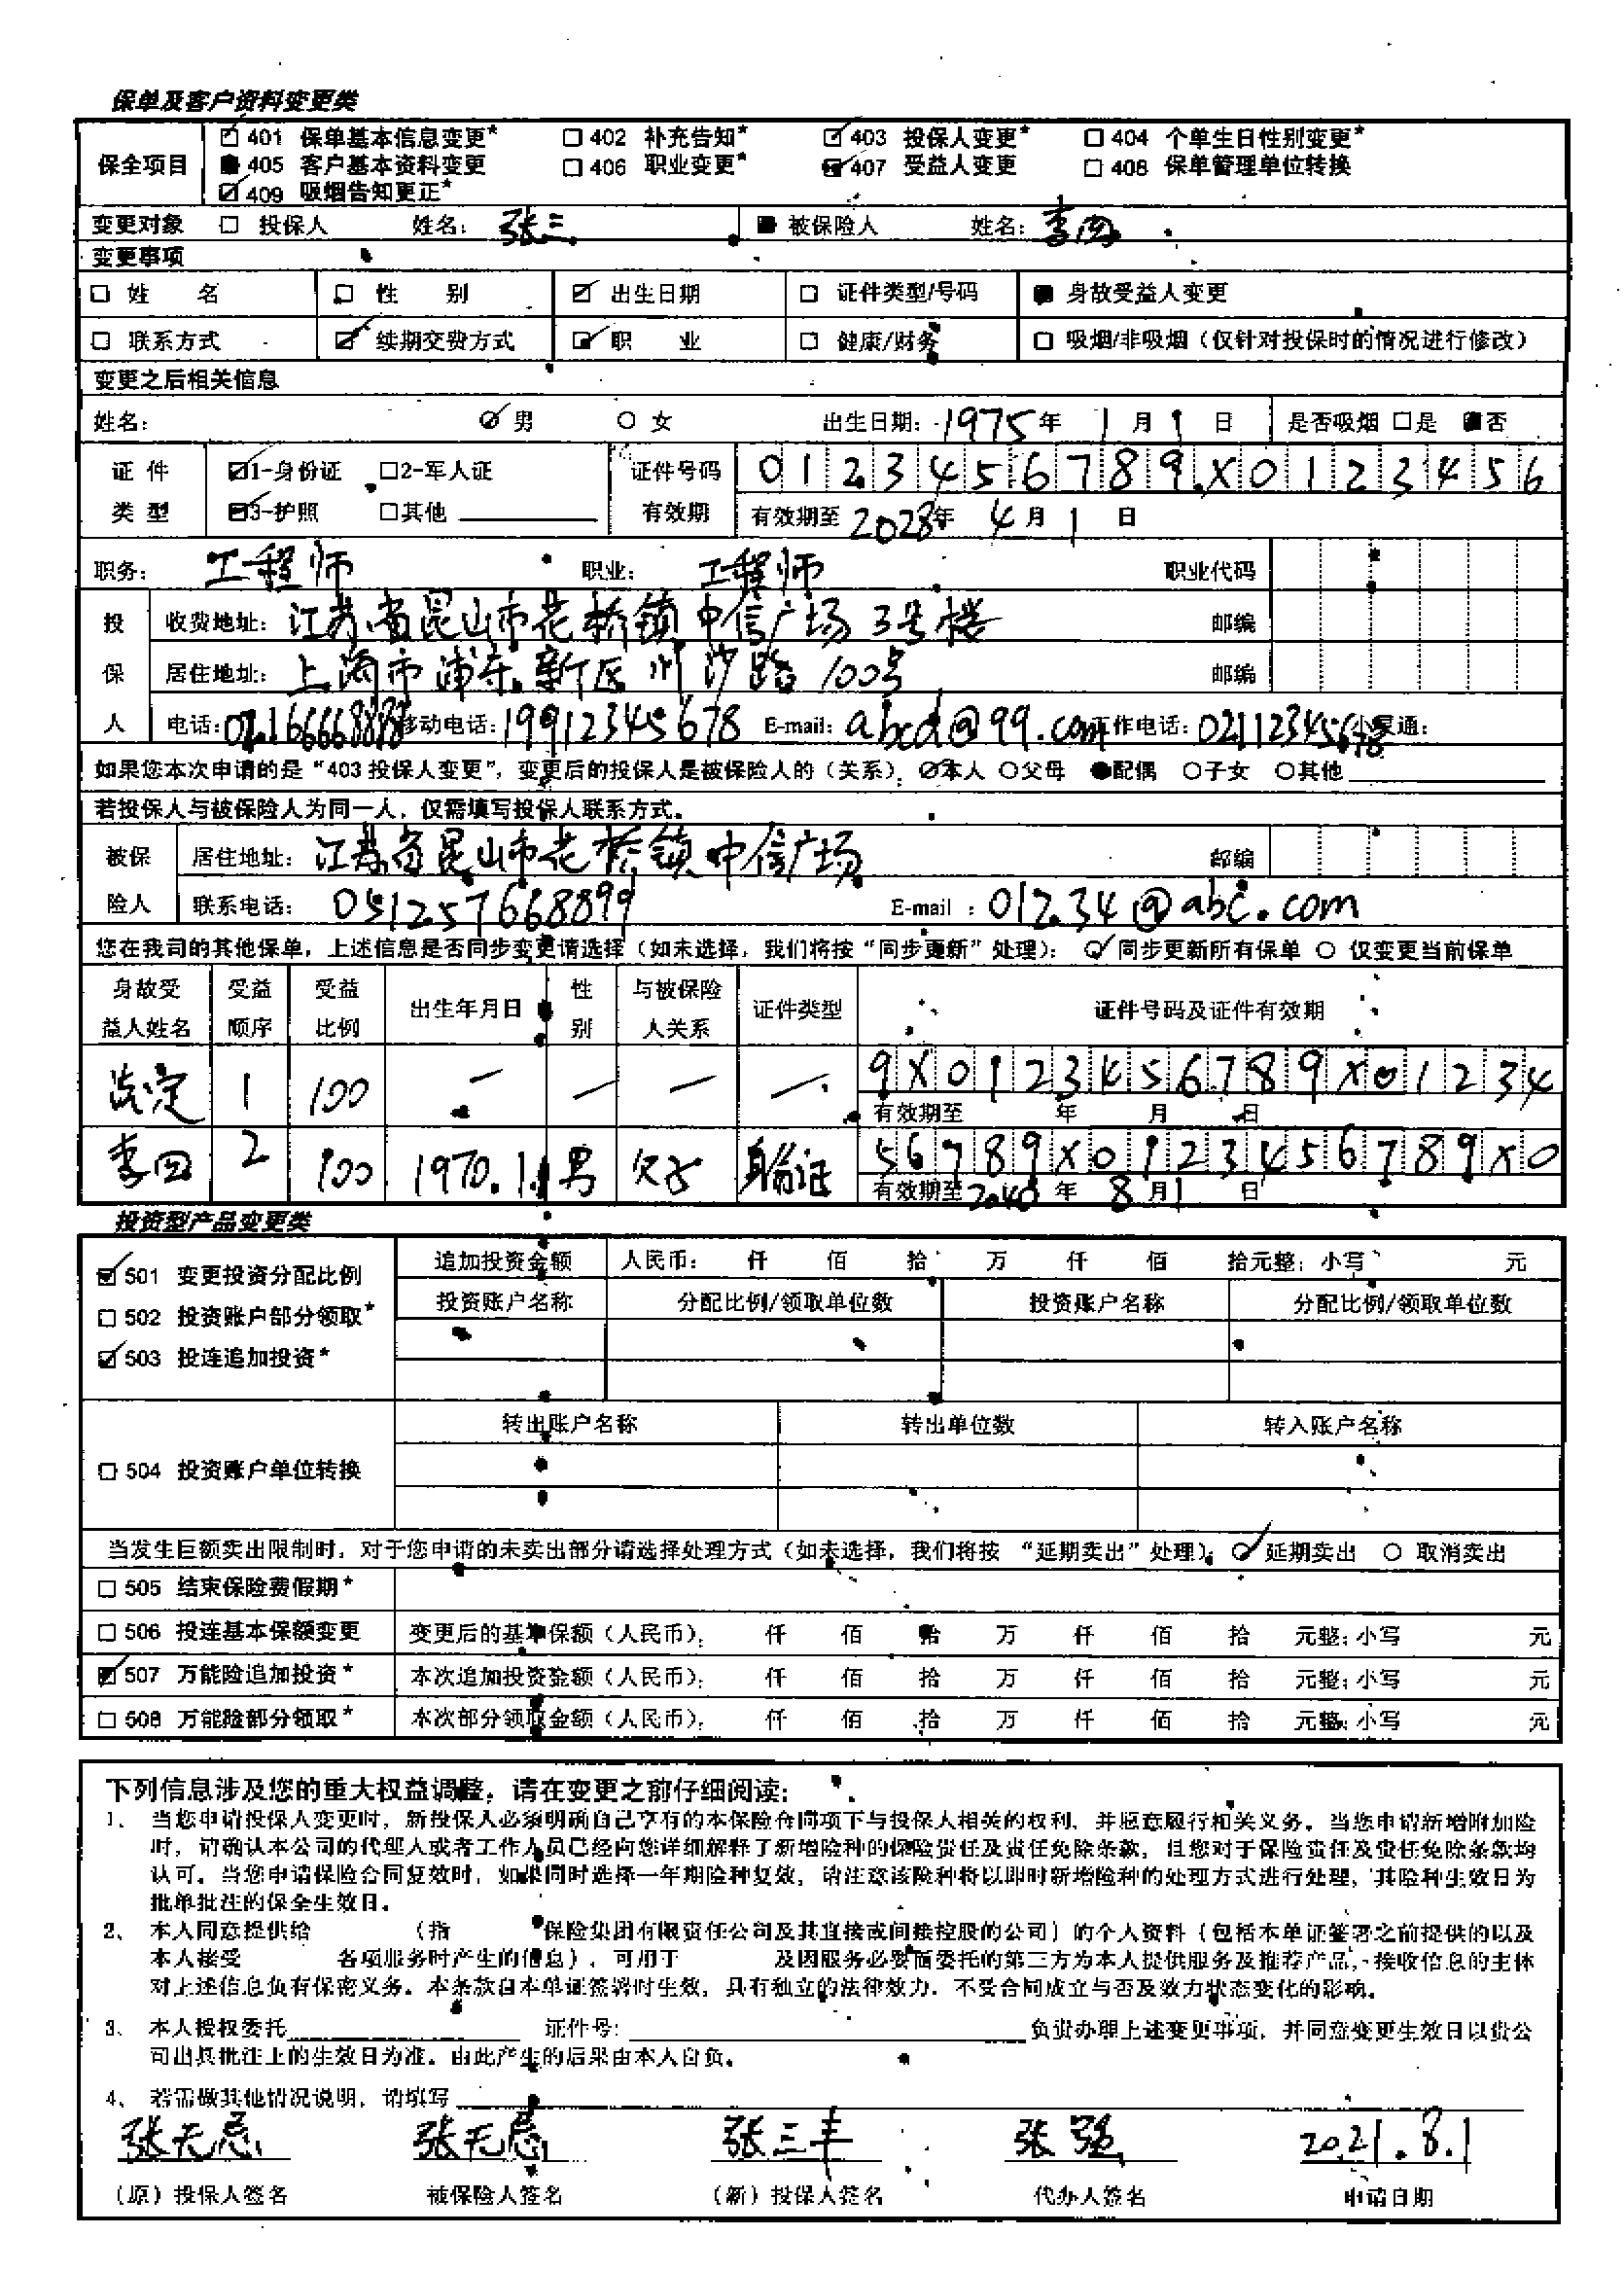 保单及客户资料变更类
保全项目 ☑ 401 保单基本信息变更* □ 402 补充告知* ☑ 403 投保人变更* □ 404 个单生日性别变更*
■ 405 客户基本资料变更 □ 406 职业变更* ☑ 407 受益人变更 □ 408 保单管理单位转换
☑ 409 吸烟告知更正*
变更对象 □ 投保人 姓名: 张三 ■ 被保险人 姓名: 李四
变更事项
□ 姓 名 □ 性 别 ☑ 出生日期 □ 证件类型/号码 ■ 身故受益人变更
□ 联系方式 ☑ 续期交费方式 ☑ 职 业 □ 健康/财务 □ 吸烟/非吸烟（仅针对投保时的情况进行修改）
变更之后相关信息
姓名: ☑ 男 ○ 女 出生日期: 1975年 1月 1日 是否吸烟 □是 ■否
证件 ☑1-身份证 □2-军人证 证件号码 0123456789X0123456
类型 ☑3-护照 □其他 有效期 有效期至 2028年 4月 1日
职务: 工程师 职业: 工程师 职业代码
投 收费地址: 江苏省昆山市花桥镇中信广场3号楼 邮编
保 居住地址: 上海市浦东新区川沙路100号 邮编
人 电话: 02166668888 移动电话: 19912345678 E-mail: abcd@99.com 工作电话: 02112345678 小灵通:
如果您本次申请的是“403 投保人变更”，变更后的投保人是被保险人的（关系） ☑本人 ○父母 ●配偶 ○子女 ○其他
若投保人与被保险人为同一人，仅需填写投保人联系方式。
被保 居住地址: 江苏省昆山市花桥镇中信广场 邮编
险人 联系电话: 051257668899 E-mail : 01234@abc.com
您在我司的其他保单，上述信息是否同步变更请选择（如未选择，我们将按“同步更新”处理）: ☑ 同步更新所有保单 ○ 仅变更当前保单
身故受益人姓名 受益顺序 受益比例 出生年月日 性别 与被保险人关系 证件类型 证件号码及证件有效期
法定 1 100 — — — — 9X0123456789X01234
有效期至 年 月 日
李四 2 100 1970.1.1 男 父子 身份证 56789X0123456789X0
有效期至 2040 年 8月1 日
投资型产品变更类
☑ 501 变更投资分配比例 追加投资金额 人民币: 仟 佰 拾 万 仟 佰 拾元整; 小写 元
□ 502 投资账户部分领取* 投资账户名称 分配比例/领取单位数 投资账户名称 分配比例/领取单位数
☑ 503 投连追加投资*
转出账户名称 转出单位数 转入账户名称
□ 504 投资账户单位转换
当发生巨额卖出限制时，对于您申请的未卖出部分请选择处理方式（如未选择，我们将按 “延期卖出” 处理）: ☑ 延期卖出 ○ 取消卖出
□ 505 结束保险费假期*
□ 506 投连基本保额变更 变更后的基本保额（人民币）: 仟 佰 拾 万 仟 佰 拾 元整; 小写 元
☑ 507 万能险追加投资* 本次追加投资金额（人民币）: 仟 佰 拾 万 仟 佰 拾 元整; 小写 元
□ 508 万能险部分领取* 本次部分领取金额（人民币）: 仟 佰 拾 万 仟 佰 拾 元整; 小写 元
下列信息涉及您的重大权益调整，请在变更之前仔细阅读:
1、 当您申请投保人变更时，新投保人必须明确自己享有的本保险合同项下与投保人相关的权利，并愿意履行相关义务。当您申请新增附加险
时，请确认本公司的代理人或者工作人员已经向您详细解释了新增险种的保险责任及责任免除条款，且您对于保险责任及责任免除条款均
认可。当您申请保险合同复效时，如果同时选择一年期险种复效，请注意该险种将以即时新增险种的处理方式进行处理，其险种生效日为
批单批注的保全生效日。
2、 本人同意提供给 （指 保险集团有限责任公司及其直接或间接控股的公司）的个人资料（包括本单证签署之前提供的以及
本人接受 各项服务时产生的信息），可用于 及因服务必要而委托的第三方为本人提供服务及推荐产品，接收信息的主体
对上述信息负有保密义务。本条款自本单证签署时生效，具有独立的法律效力，不受合同成立与否及效力状态变化的影响。
3、 本人授权委托 证件号: 负责办理上述变更事项，并同意变更生效日以贵公
司出具批注上的生效日为准。由此产生的后果由本人自负。
4、 若需做其他情况说明，请填写
张无忌 张无忌 张三丰 张强 2021.8.1
（原）投保人签名 被保险人签名 （新）投保人签名 代办人签名 申请日期